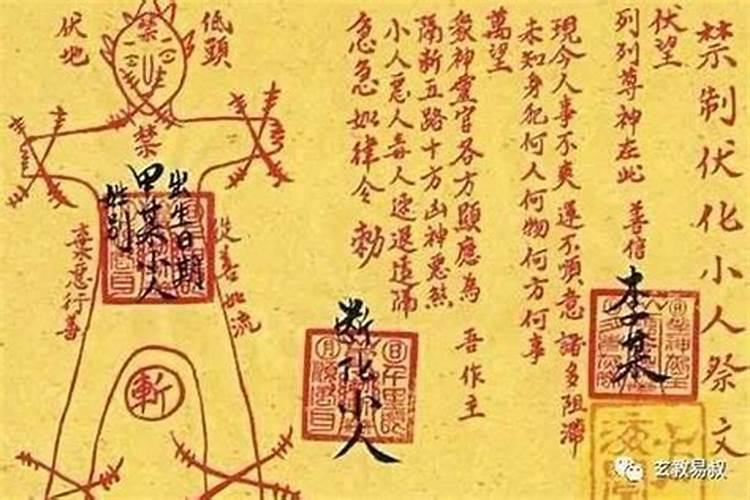 禁制伏化小人祭文
伏望
列列尊神在此 善信 李某
現今人事不爽運不順意諸多阻滯
未知身犯何人何物何方何事
萬望
衆神靈官各方顯應為 吾作主
隔斷五路十方凶神惡煞
小人惡人毒人速退遠隔
急急如律令 勅
斷化小人
低頭
禁
伏地
禁
出生日期
甲某小人
姓別
從善如流
棄惡行善
斬
玄教易叔